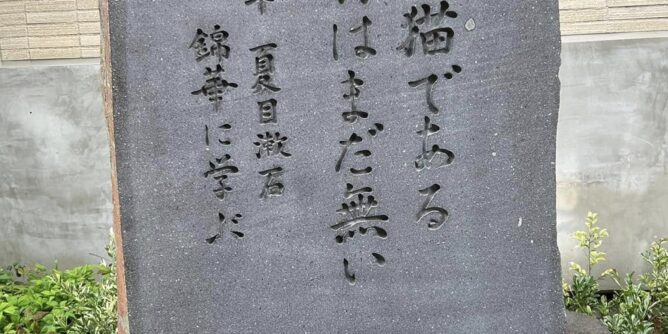 猫である
はまだ無い
夏目漱石
錦華に学ぶ